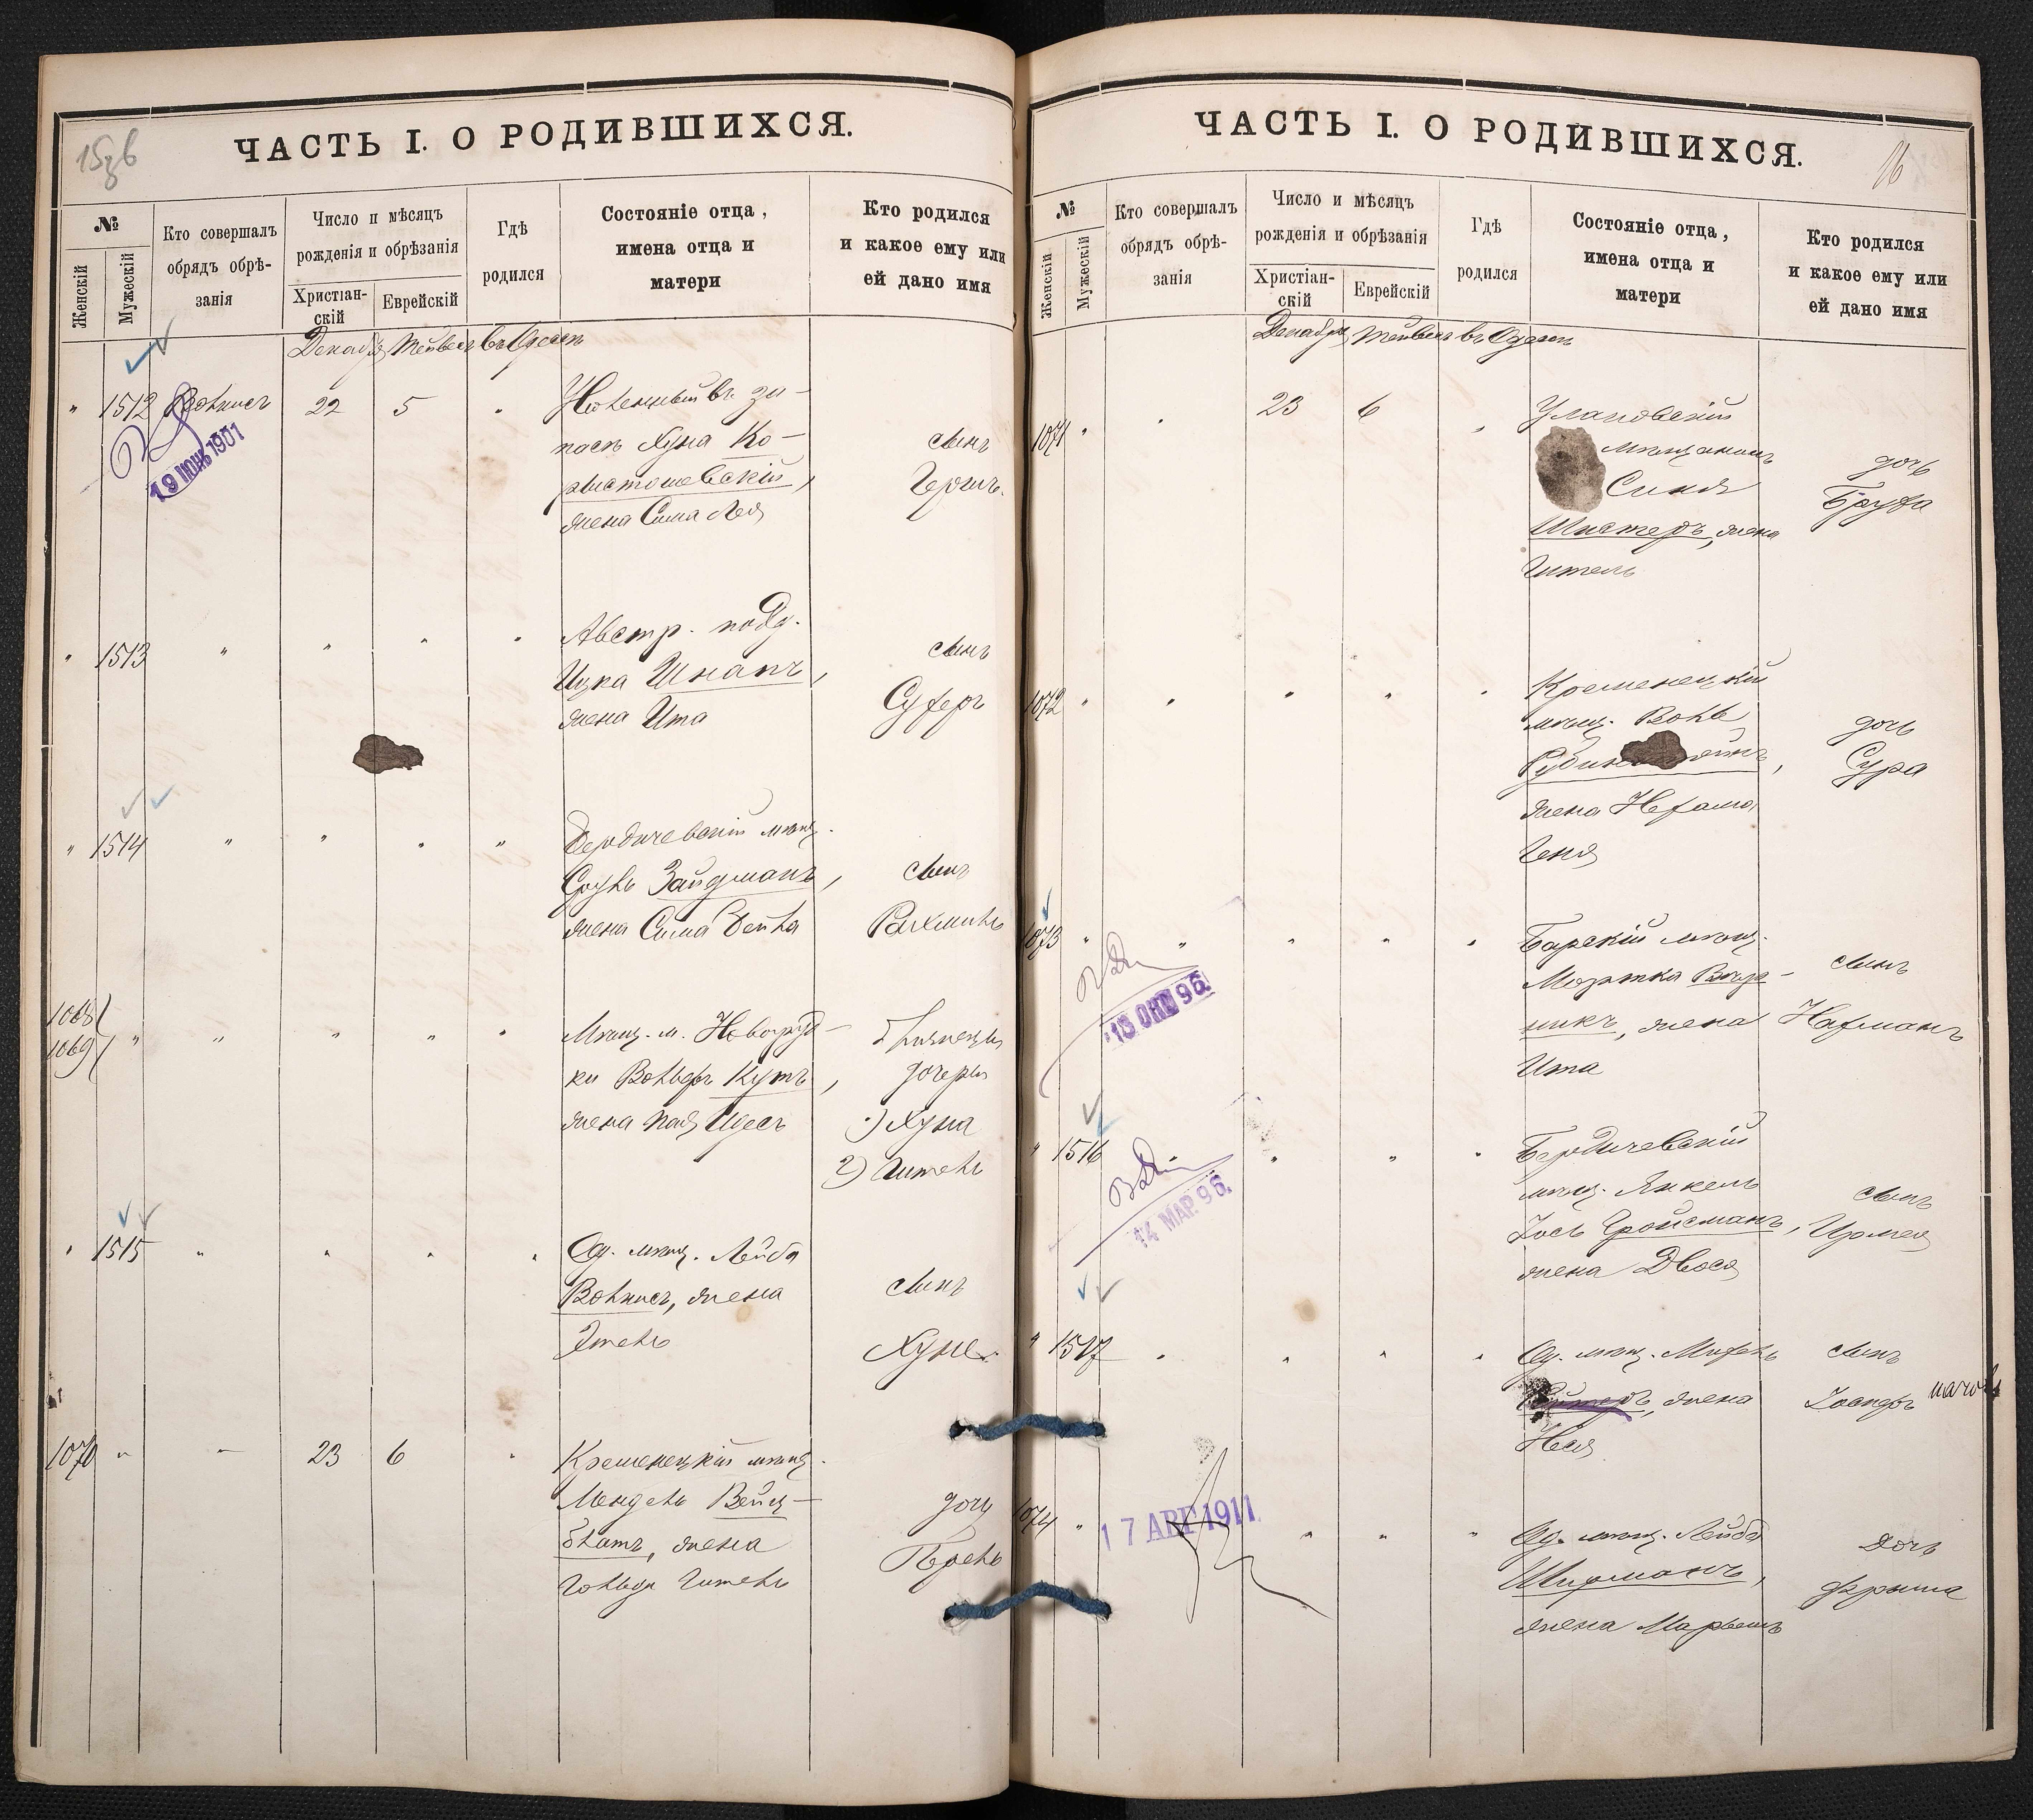 15
ЧАСТЬ I. О РОДИВШИХСЯ.
№
Женскій
Мужескій
Кто совершалъ
обрядъ обрѣ-
занія
Число и мѣсяцъ
рожденія и обрѣзанія
Христіан-
скій
Еврейскій
Гдѣ
родился
Состояніе отца,
имена отца и
матери
Кто родился
и какое ему или
ей дано имя
Декабрь Тейвесъ въ Одессѣ
" 1512 Вольнисъ 22 5 "
19 ІЮНЬ 1901
въ за-
пасѣ Хуна Ко-
ростошевскій,
жена Сима Лея
сынъ
Гершъ.
" 1513 " " " "
Австр. подд.
Ицка Шнапъ,
жена Ита
сынъ
Сухеръ
" 1514 " " " "
Бердичевскій мѣщ.
Сруль Зайдманъ,
жена Сима Бейла
сынъ
Рахмиль
1068
1069 " " " " "
Мѣщ. м.
ки Вольфъ Кутъ,
жена Идесъ
близнецы
дочери
1) Хуна
2) Гитель
" 1515 " " " "
Од. мѣщ. Лейба
Вольнисъ, жена
Этель
сынъ
Хуне
1070 " " 23 6 "
Кременецкій мѣщ.
Мендель Вейц-
блатъ, жена
Гольда Гитель
дочь
Брейль
ЧАСТЬ I. О РОДИВШИХСЯ.
16
№
Женскій
Мужескій
Кто совершалъ
обрядъ обрѣ-
занія
Число и мѣсяцъ
рожденія и обрѣзанія
Христіан-
скій
Еврейскій
Гдѣ
родился
Состояніе отца,
имена отца и
матери
Кто родился
и какое ему или
ей дано имя
Декабрь Тейвесъ въ Одессѣ
1071 " " 23 6 "
Улановскій
мѣщанинъ
Шистеръ, жена
Гитель
дочь
Бруха
1072 " " " " "
Кременецкій
мѣщ. Вольъ
жена Нехама
Геня
дочь
Сура
1073 " " " " "
Барскій мѣщ.
Мортка
никъ, жена
Ита
сынъ
Нахманъ
96.
" 1516 " " " "
Бердичевскій
мѣщ. Янкель
Іось Гройсманъ,
жена Двося
сынъ
14 МАР. 96.
" 1517 " " " "
Од. мѣщ. Михель
жена
Неся
сынъ
1074 " " " "
17 АВГ 1911
Од. мѣщ. Лейба
Ширманъ,
жена Марьемъ
дочь
Фрыма